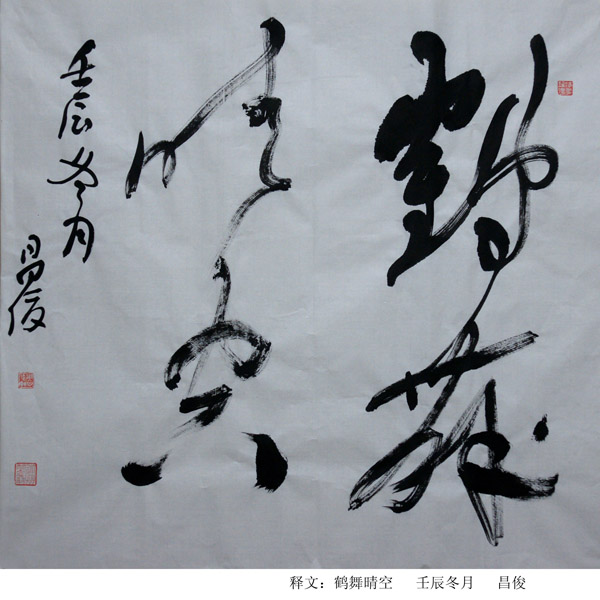 鹤舞
晴空
壬辰冬月
昌俊
释文：鹤舞晴空 壬辰冬月 昌俊